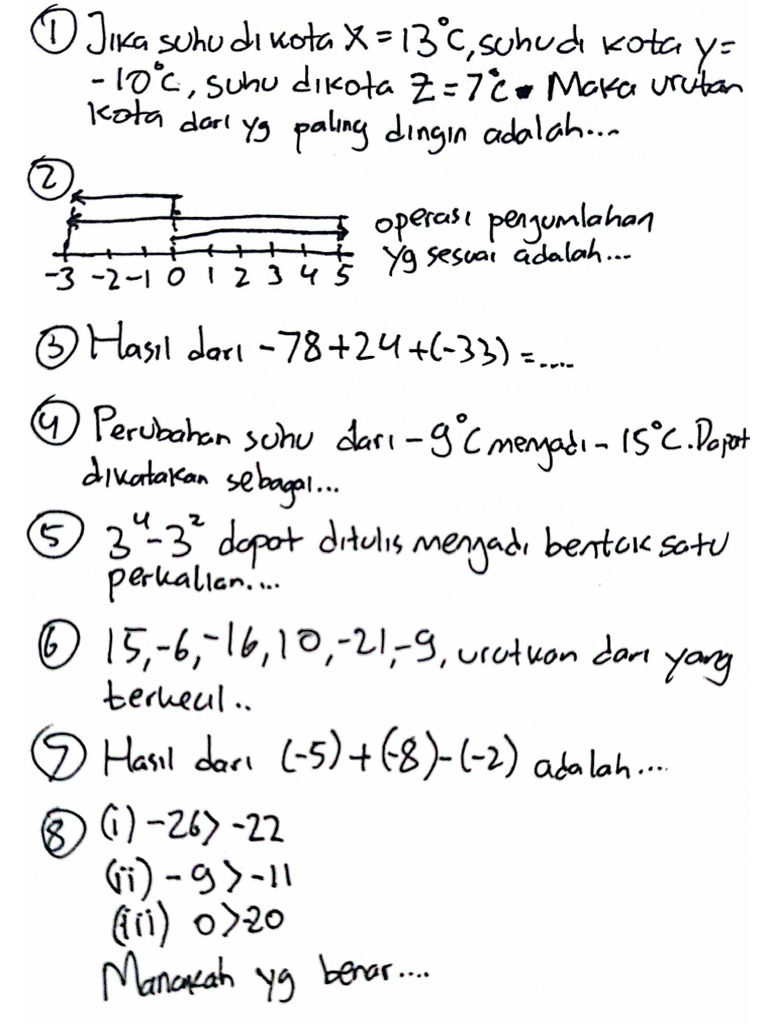 ① Jika suhu di kota X = 13°C, suhu di kota y =
-10°C, suhu dikota Z = 7°C. Maka urutan
kota dari yg paling dingin adalah...
②
operasi pengumlahan
-3 -2 -1 0 1 2 3 4 5 yg sesuai adalah...
③ Hasil dari -78+24+(-33) = ....
④ Perubahan suhu dari -9°C menjadi -15°C. Dapat
dikatakan sebagai...
⑤ 3⁴-3² dapat ditulis menjadi bentuk satu
perkalian....
⑥ 15,-6,-16,10,-21,-9, urutkan dari yang
terkecil..
⑦ Hasil dari (-5)+(-8)-(-2) adalah....
⑧ (i) -26> -22
(ii) -9>-11
(iii) 0>-20
Manakah yg benar....